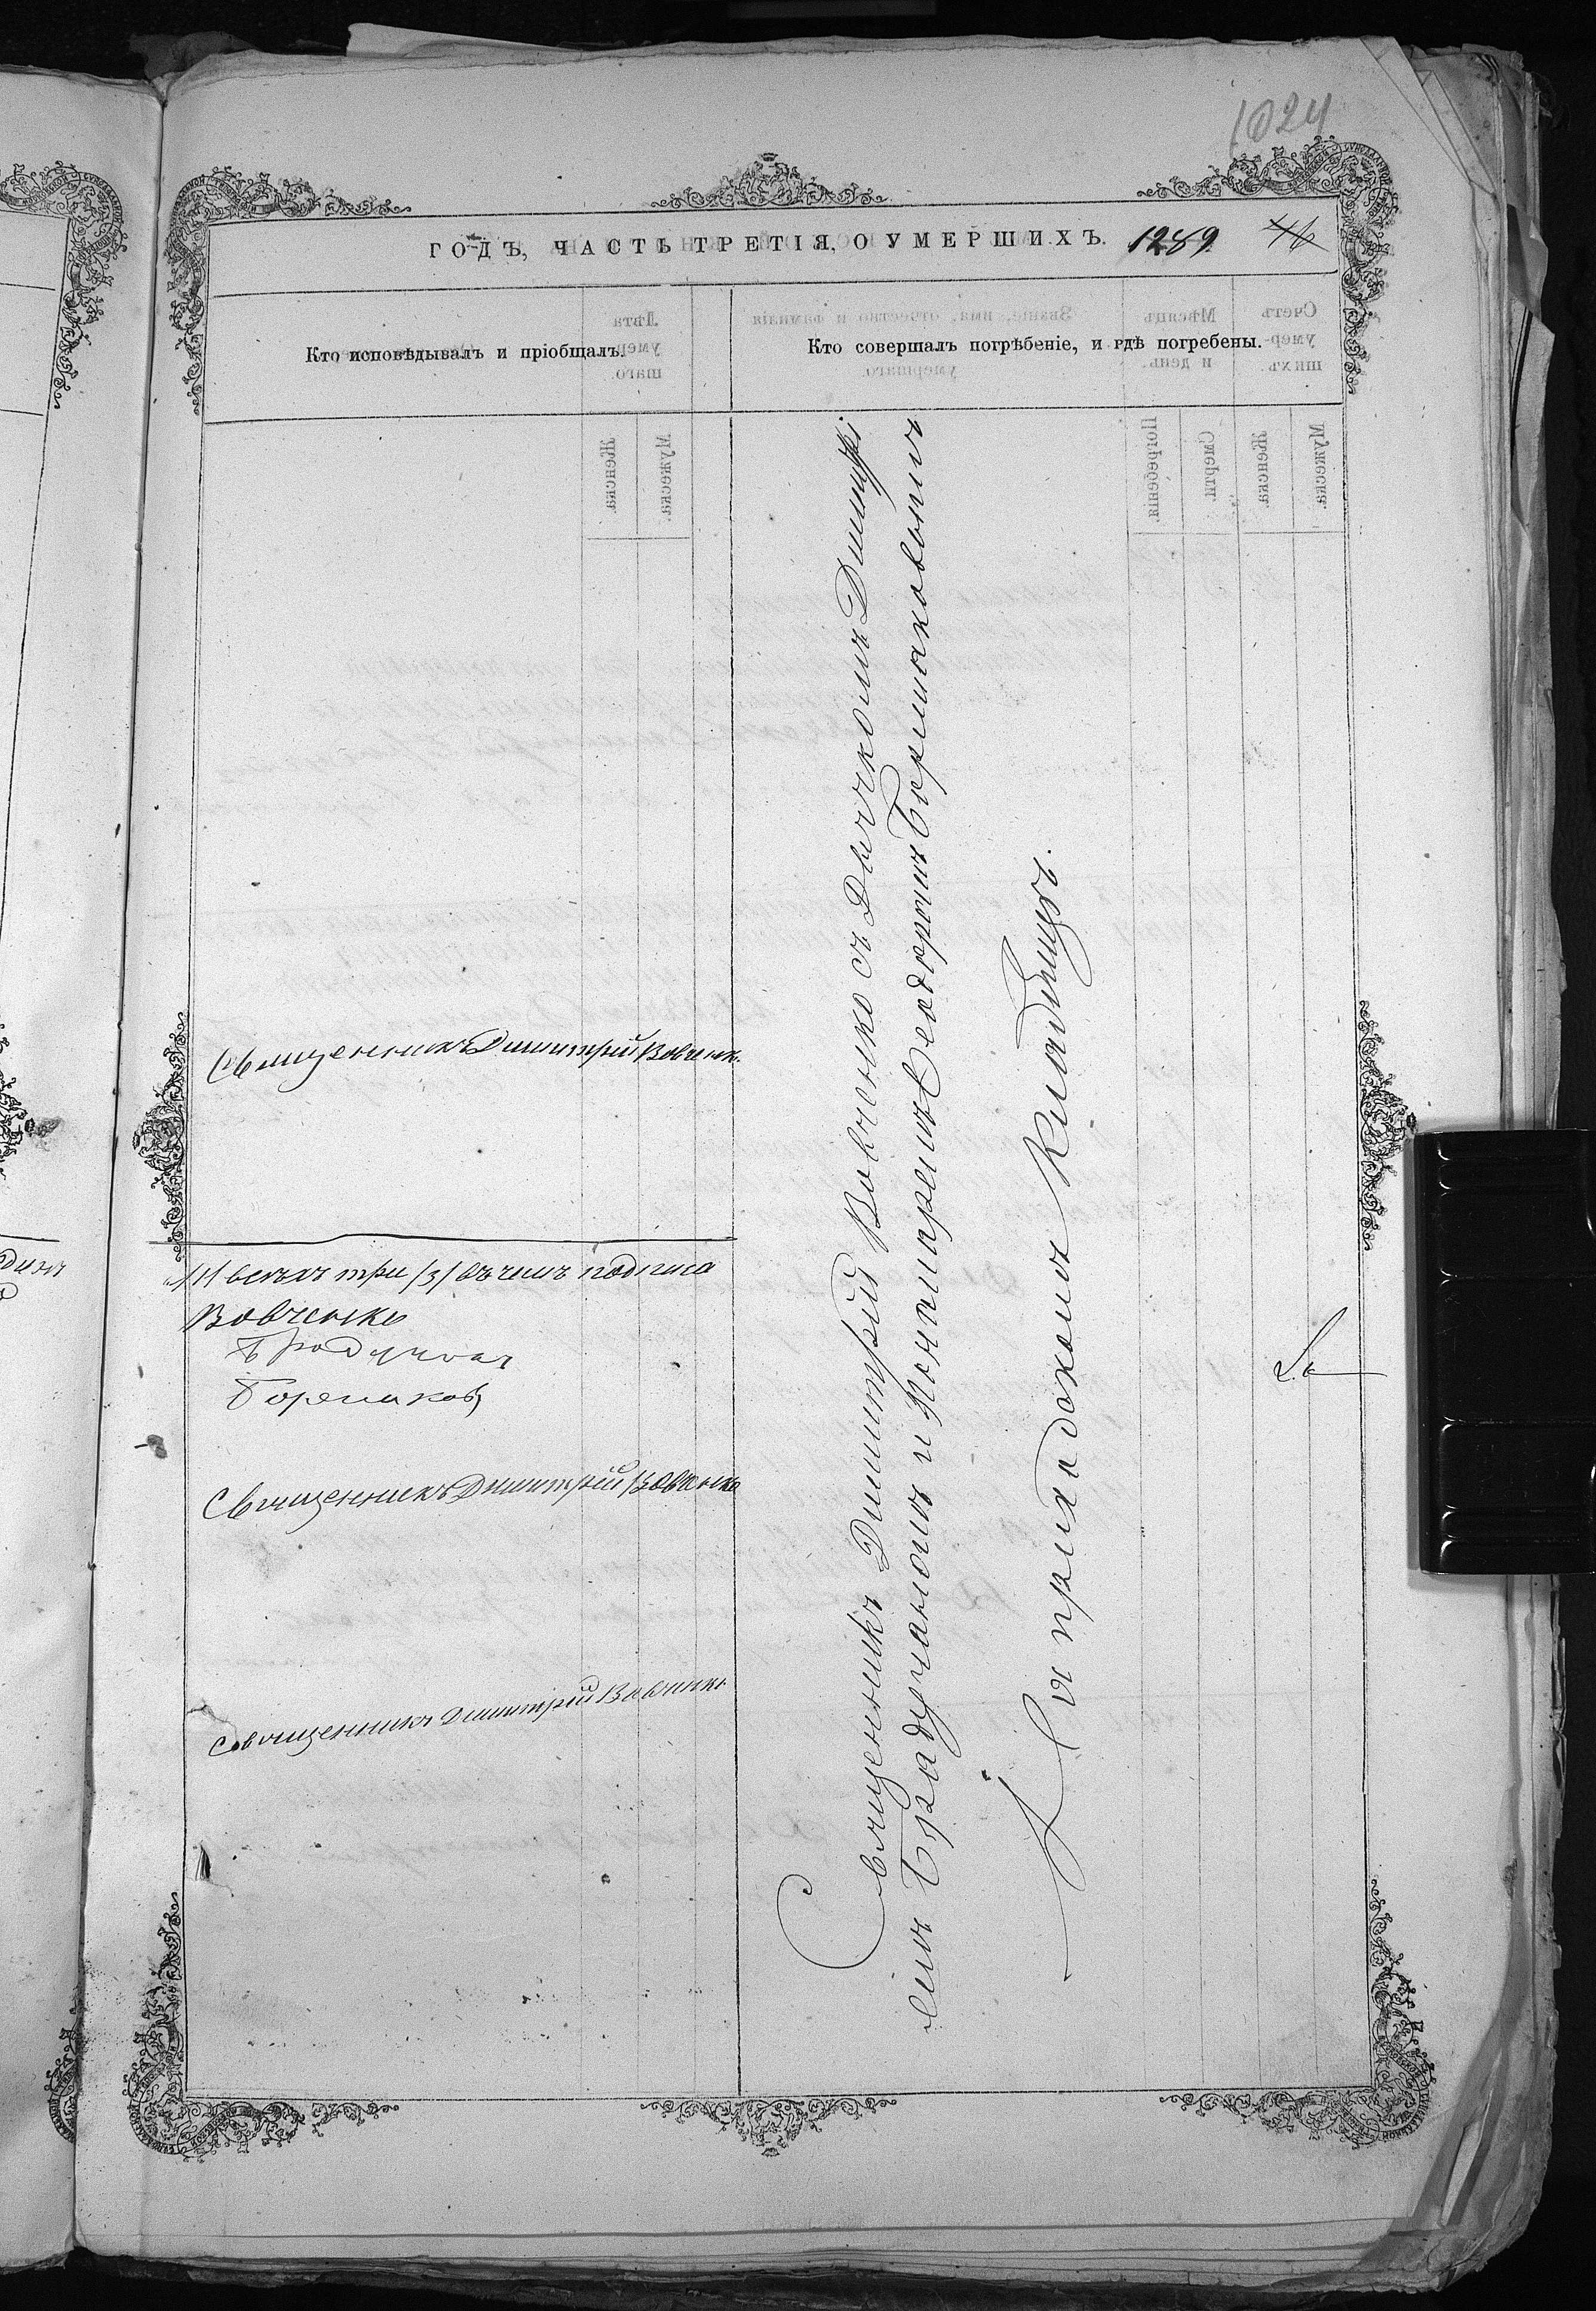 1024
ГОДЪ, ЧАСТЬ ТРЕТІЯ, О УМЕРШИХЪ. 1289 46
Кто исповѣдывалъ и пріобщалъ.
Кто совершалъ погрѣбеніе, и гдѣ погребены.
Священникъ Димитрій Вовченк.
всѣхъ три /3/ въ чемъ подписа
Вовченко
Священникъ Димитрій Вовченко
Священникъ Димитрій Вовченко
Священникъ Димитрій Вовченко съ Дьячкомъ Димитрі
емъ Брадучаномъ и Пономаремъ Ѳеодоромъ Бормаковымъ
на приходскомъ Кладбищѣ.